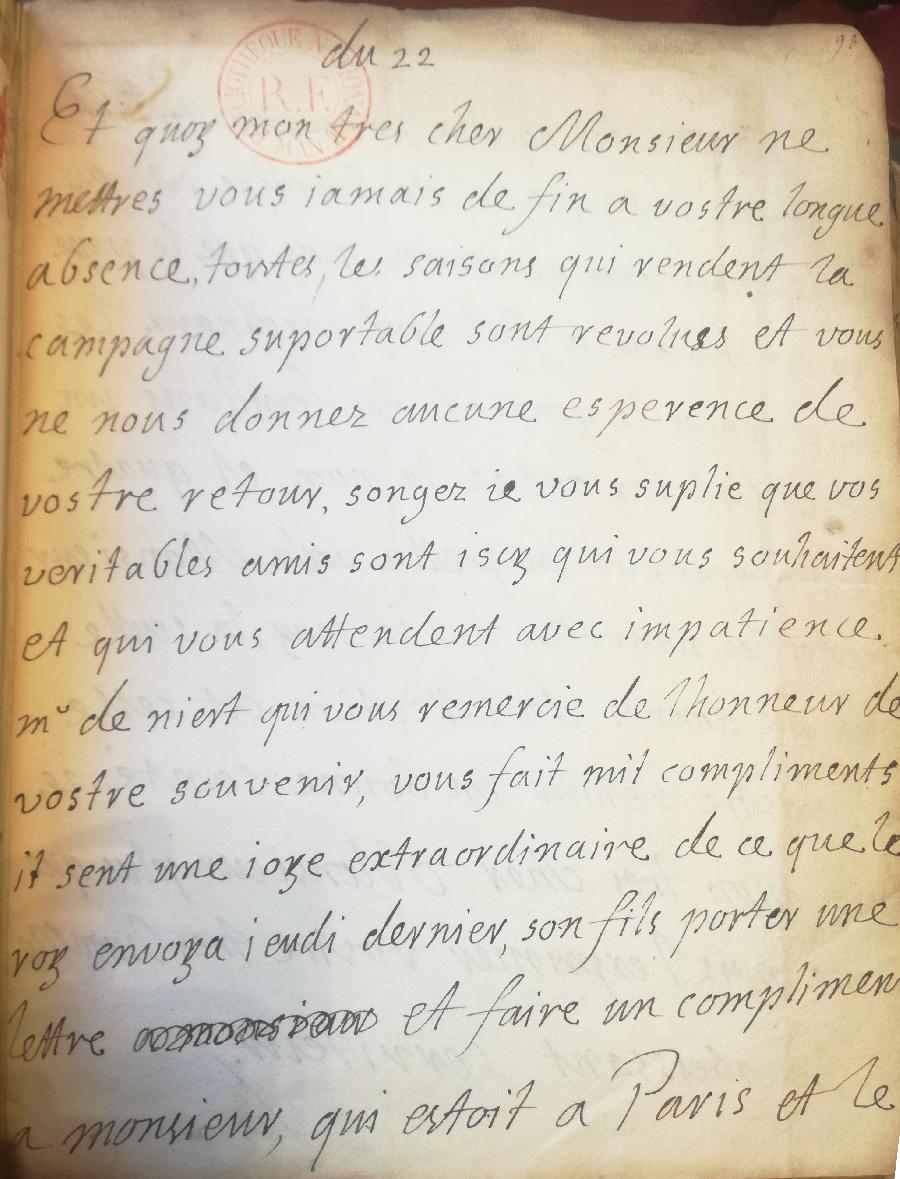 93
du 22
Et quoy mon tres cher Monsieur ne
mettres vous iamais de fin a vostre longue
absence, toutes, les saisons qui rendent la
campagne suportable sont revolues et vous
ne nous donnez aucune esperence de
vostre retour, songez ie vous suplie que vos
veritables amis sont iscy qui vous souhaitent
et qui vous attendent avec impatience.
mr de niert qui vous remercie de lhonneur de
vostre souvenir, vous fait mil compliments
il sent une ioye extraordinaire de ce que le
roy envoya ieudi dernier, son fils porter une
lettre a monsieur et faire un complimen
a monsieur, qui estoit a Paris et le
R.F.